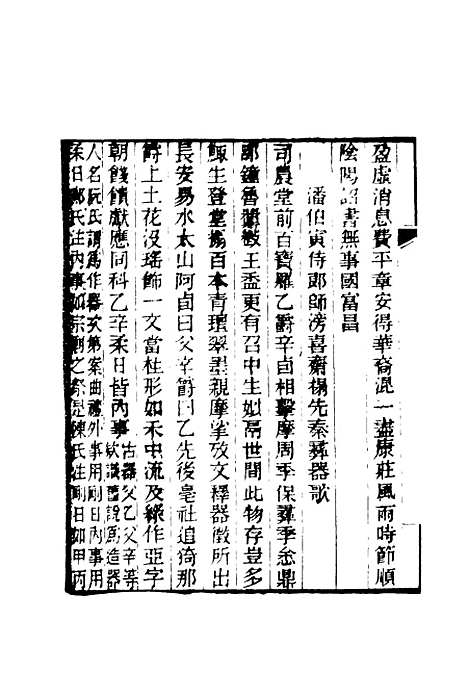 盈虛消息費平章安得華裔混一盡康莊風雨時節順
陰陽詔書無事國富昌
潘伯寅侍郎師滂喜齋搨先秦彝器歌
司農堂前百寶羅乙爵辛卣相擊摩周季保彝季忿鼎
邵鐘魯王盉更有召中生妣鬲世間此物存豈多
鯫生登堂搨百本青瓌翠墨親摩挲攷文釋器徵所出
長安易水太山阿卣曰父辛爵曰乙先後亳社追猗那
爵上土花沒瑤飾一文當柱形如禾中流及緣作亞字
朝餞饋獻應同科乙辛柔日皆內事古器父乙父辛等款識舊說爲造器
人名阮氏謂爲作器次第案曲禮外事用剛日內事用
柔日鄭氏注內事如宗廟之祭是陳氏注剛日卽甲丙